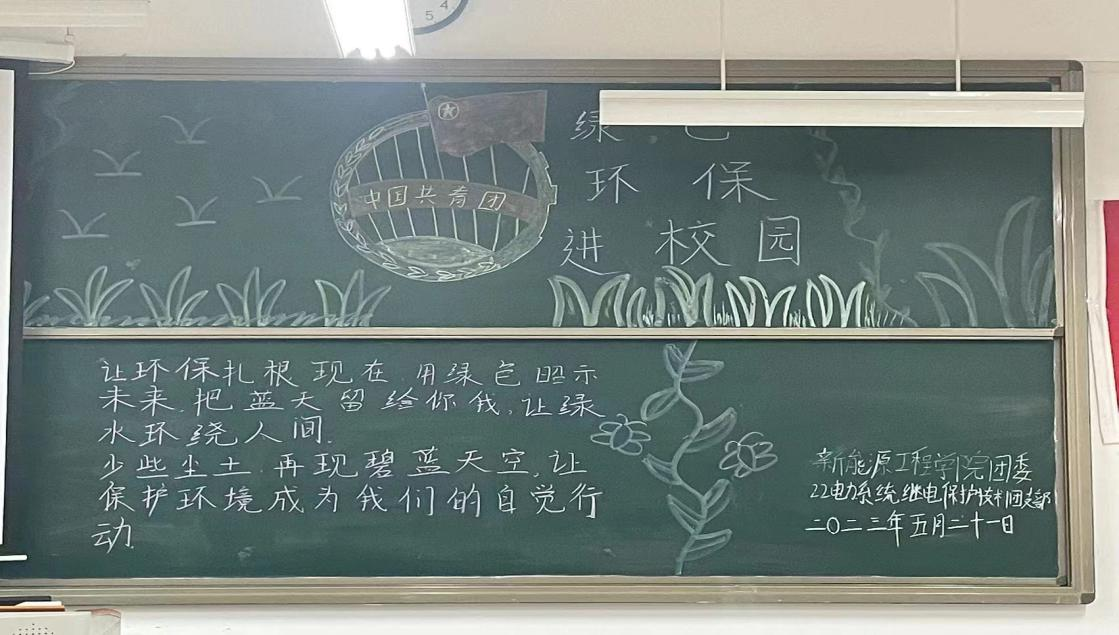 中国共青团
绿色
环保
进校园
让环保扎根现在.用绿色昭示
未来.把蓝天留给你我,让绿
水环绕人间.
少些尘土.再现碧蓝天空,让
保护环境成为我们的自觉行
动.
新能源工程学院团委
22电力系统继电保护技术团支部
二〇二三年五月二十一日